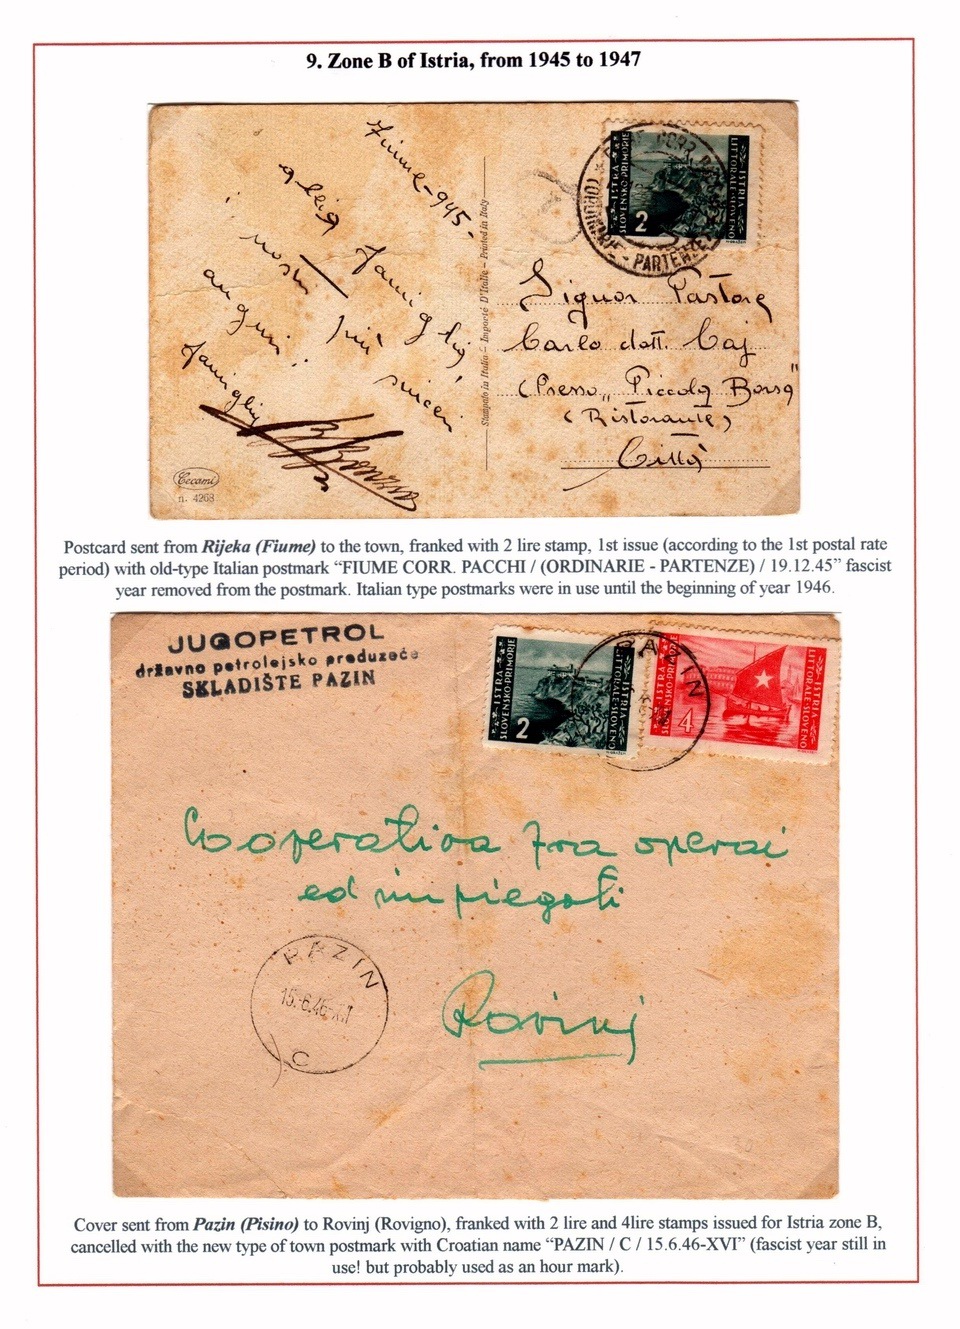 9. Zone B of Istria, from 1945 to 1947
Fiume - 945 -
alla Famiglia
i nostri più sinceri
auguri!
Famiglia
Stampato in Italia - Importé D'Italie - Printed in Italy
Cecami
n. 4268
ISTRA
SLOVENSKO PRIMORJE
2
ISTRIA
LITTORALE SLOVENO
CORR. PARTENZE
Signor Pastore
Carlo dott. Gaj
(Presso „Piccola Borsa"
(Ristorante)
Città
Postcard sent from Rijeka (Fiume) to the town, franked with 2 lire stamp, 1st issue (according to the 1st postal rate
period) with old-type Italian postmark “FIUME CORR. PACCHI / (ORDINARIE - PARTENZE) / 19.12.45” fascist
year removed from the postmark. Italian type postmarks were in use until the beginning of year 1946.
JUGOPETROL
državno petrolejsko preduzeće
SKLADIŠTE PAZIN
ISTRA
SLOVENSKO PRIMORJE
2
ISTRIA
LITTORALE SLOVENO
PAZIN
ISTRA
SLOVENSKO PRIMORJE
4
ISTRIA
LITTORALE SLOVENO
Cooperativa fra operai
ed impiegati
PAZIN
15.-6.46-XVI
C
Rovinj
Cover sent from Pazin (Pisino) to Rovinj (Rovigno), franked with 2 lire and 4lire stamps issued for Istria zone B,
cancelled with the new type of town postmark with Croatian name “PAZIN / C / 15.6.46-XVI” (fascist year still in
use! but probably used as an hour mark).